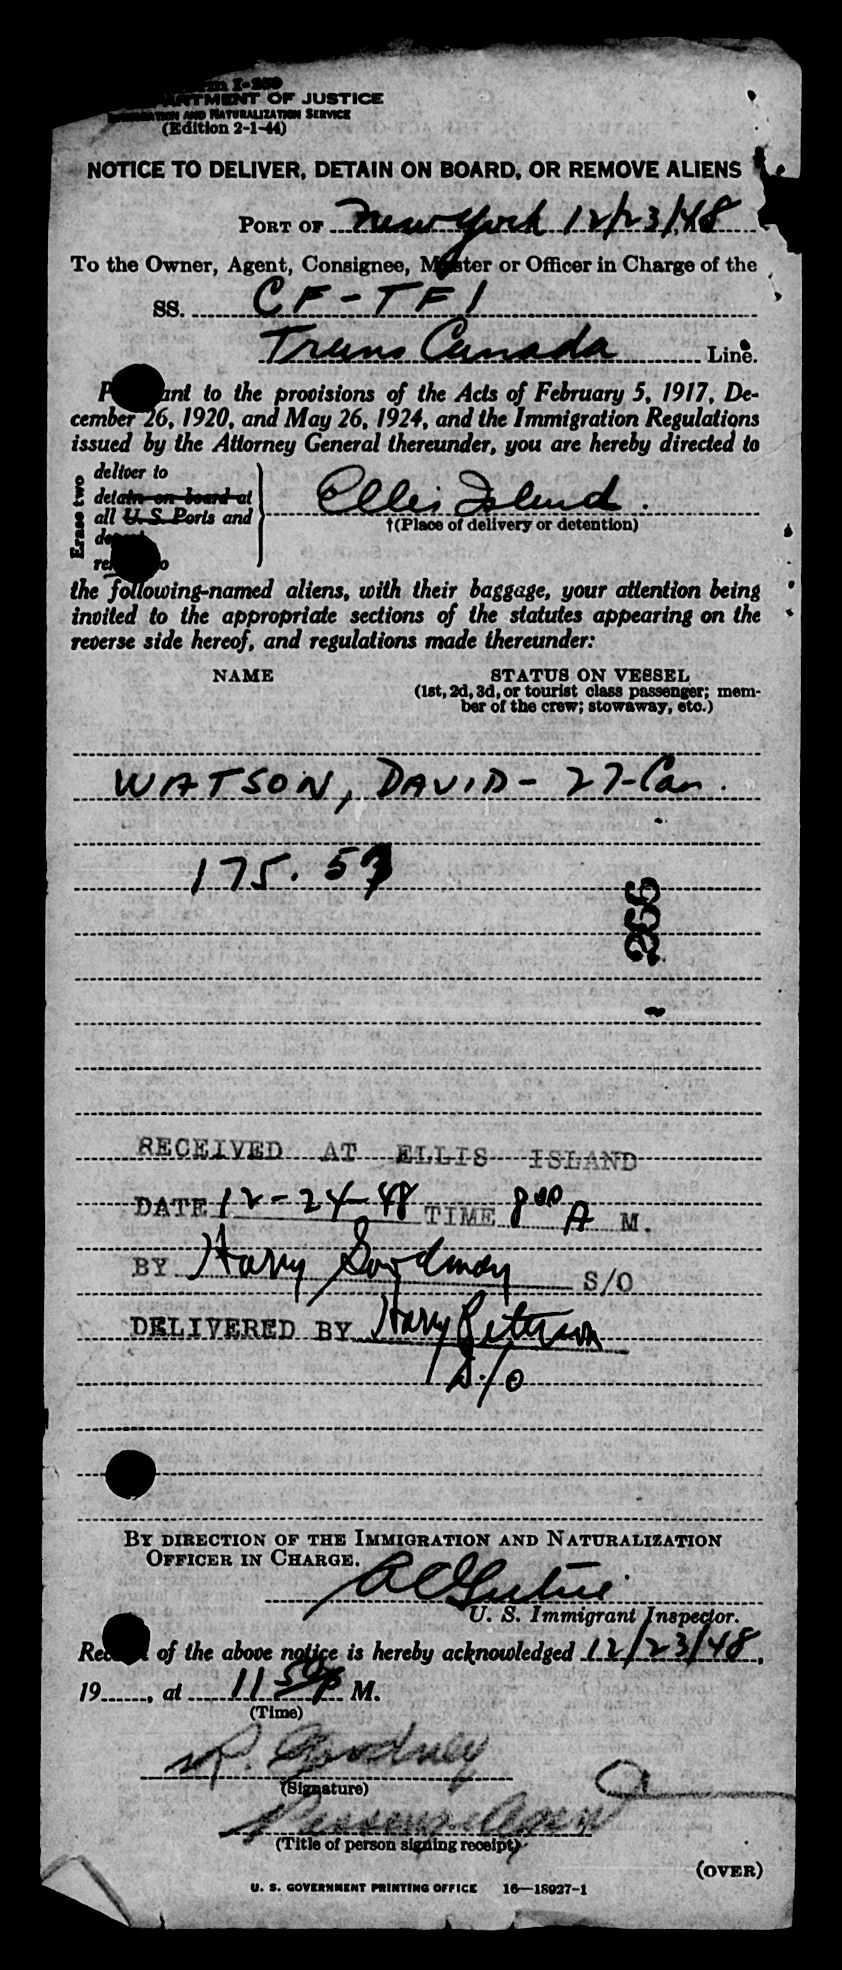 Form I-259
DEPARTMENT OF JUSTICE
IMMIGRATION AND NATURALIZATION SERVICE
(Edition 2-1-44)
NOTICE TO DELIVER, DETAIN ON BOARD, OR REMOVE ALIENS
PORT OF New York 12/23/48
To the Owner, Agent, Consignee, Master or Officer in Charge of the
SS. CF-TFI
Trans Canada Line.
Pursuant to the provisions of the Acts of February 5, 1917, De-
cember 26, 1920, and May 26, 1924, and the Immigration Regulations
issued by the Attorney General thereunder, you are hereby directed to
Erase two
deliver to
detain on board at
all U.S. Ports and
Ellis Island.
†(Place of delivery or detention)
the following-named aliens, with their baggage, your attention being
invited to the appropriate sections of the statutes appearing on the
reverse side hereof, and regulations made thereunder:
NAME STATUS ON VESSEL
(1st, 2d, 3d, or tourist class passenger; mem-
ber of the crew; stowaway, etc.)
WATSON, DAVID - 27-Can.
175.57
266
RECEIVED AT ELLIS ISLAND
DATE 12-24-48 TIME 8 00 A M.
BY Harry S/O
DELIVERED BY Harry Peterson
S/O
BY DIRECTION OF THE IMMIGRATION AND NATURALIZATION
OFFICER IN CHARGE.
U. S. Immigrant Inspector.
Receipt of the above notice is hereby acknowledged 12/23/48,
19......, at 11 50 p M.
(Time)
(Signature)
(Title of person signing receipt)
(OVER)
U. S. GOVERNMENT PRINTING OFFICE 16—18927-1